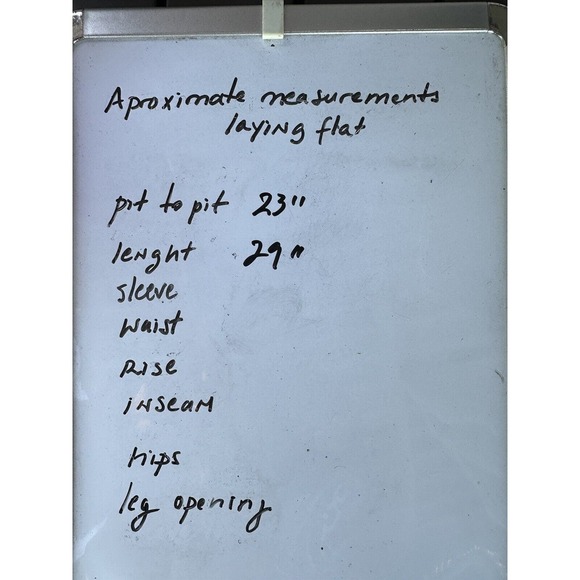 Aproximate measurements
laying flat
pit to pit 23"
lenght 29"
sleeve
waist
Rise
inseam
hips
leg opening